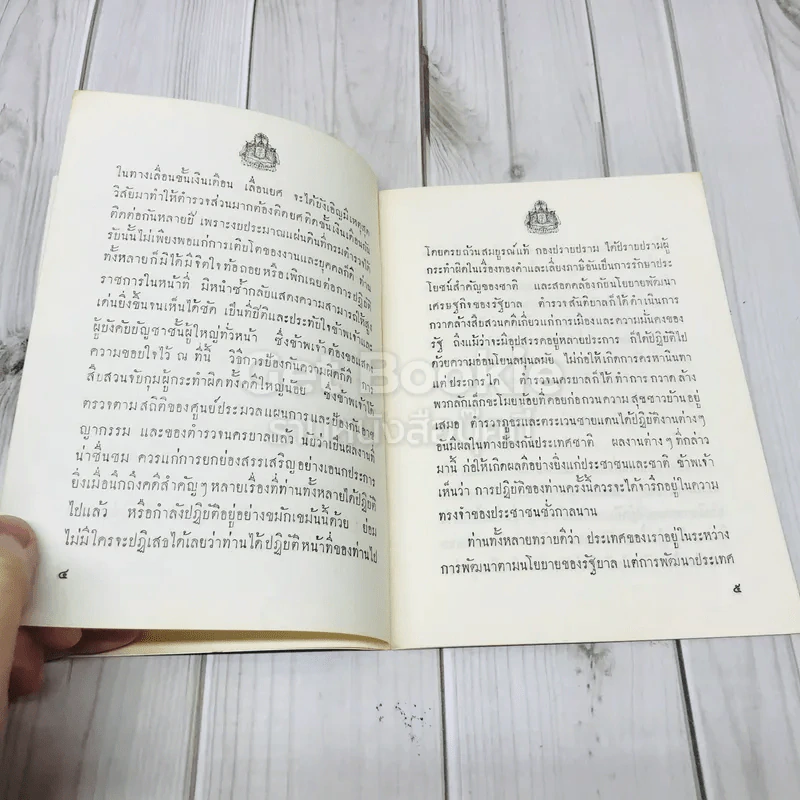 ในทางเลื่อนชั้นเงินเดือน เลื่อนยศ จะได้ยังเอิญมีเหตุสุด
วิสัยมาทำให้ตำรวจส่วนมากต้องติดยศติดขั้นเงินเดือนอัน
ติดต่อกันหลายปี เพราะงบประมาณแผ่นดินที่กรมตำรวจได้
รับนั้นไม่เพียงพอแก่การเติบโตของงานและบุคคลก็ดี ท่าน
ทั้งหลายก็มิได้มีจิตใจท้อถอยหรือเพิกเฉยต่อการปฏิบัติ
ราชการในหน้าที่ มิหนำซ้ำกลับแสดงความสามารถให้สูง
เด่นยิ่งขึ้นจนเห็นได้ชัด เป็นที่ปิติและประทับใจข้าพเจ้าและ
ผู้บังคับบัญชาชั้นผู้ใหญ่ทั่วหน้า ซึ่งข้าพเจ้าต้องขอแสดง
ความขอบใจไว้ ณ ที่นี้ วิธีการป้องกันความผิดก็ดี การ
สืบสวนจับกุมผู้กระทำผิดทั้งคดีใหญ่น้อย ซึ่งข้าพเจ้าได้
ตรวจตามสถิติของศูนย์ประมวลแผนการและป้องกันอาช
ญากรรม และของตำรวจนครบาลแล้ว นับว่าเป็นผลงานที่
น่าชื่นชม ควรแก่การยกย่องสรรเสริญอย่างเอนกประการ
ยิ่งเมื่อนึกถึงคดีสำคัญๆ หลายเรื่องที่ท่านทั้งหลายได้ปฏิบัติ
ไปแล้ว หรือกำลังปฏิบัติอยู่อย่างขมักเขม้นนี้ด้วย ย่อม
ไม่มีใครจะปฏิเสธได้เลยว่าท่านได้ปฏิบัติหน้าที่ของท่านไป
๔
โดยครบถ้วนสมบูรณ์แท้ กองปราบปราม ได้ปราบปรามผู้
กระทำผิดในเรื่องทองคำและเลี่ยงภาษีอันเป็นการรักษาประ
โยชน์สำคัญของชาติ และสอดคล้องกับนโยบายพัฒนา
เศรษฐกิจของรัฐบาล ตำรวจสันติบาลก็ได้ดำเนินการ
กวาดล้างสืบสวนคดีเกี่ยวแก่การเมืองและความมั่นคงของ
รัฐ ถึงแม้ว่าจะมีอุปสรรคอยู่หลายประการ ก็ได้ปฏิบัติไป
ด้วยความอ่อนโยนสมุนลมัย ไม่ก่อให้เกิดการครหานินทา
แต่ประการใด ตำรวจนครบาลก็ได้ทำการกวาดล้าง
พวกลักเล็กขะโมยน้อยที่คอยก่อกวนความสุขชาวบ้านอยู่
เสมอ ตำรวจภูธรและตระเวนชายแดนได้ปฏิบัติงานต่างๆ
อันมีผลในทางป้องกันประเทศชาติ ผลงานต่างๆ ที่กล่าว
มานี้ ก่อให้เกิดผลดีอย่างยิ่งแก่ประชาชนและชาติ ข้าพเจ้า
เห็นว่า การปฏิบัติของท่านครั้งนี้ควรจะได้จารึกอยู่ในความ
ทรงจำของประชาชนชั่วกาลนาน
ท่านทั้งหลายทราบดีว่า ประเทศของเราอยู่ในระหว่าง
การพัฒนาตามนโยบายของรัฐบาล แต่การพัฒนาประเทศ
๕